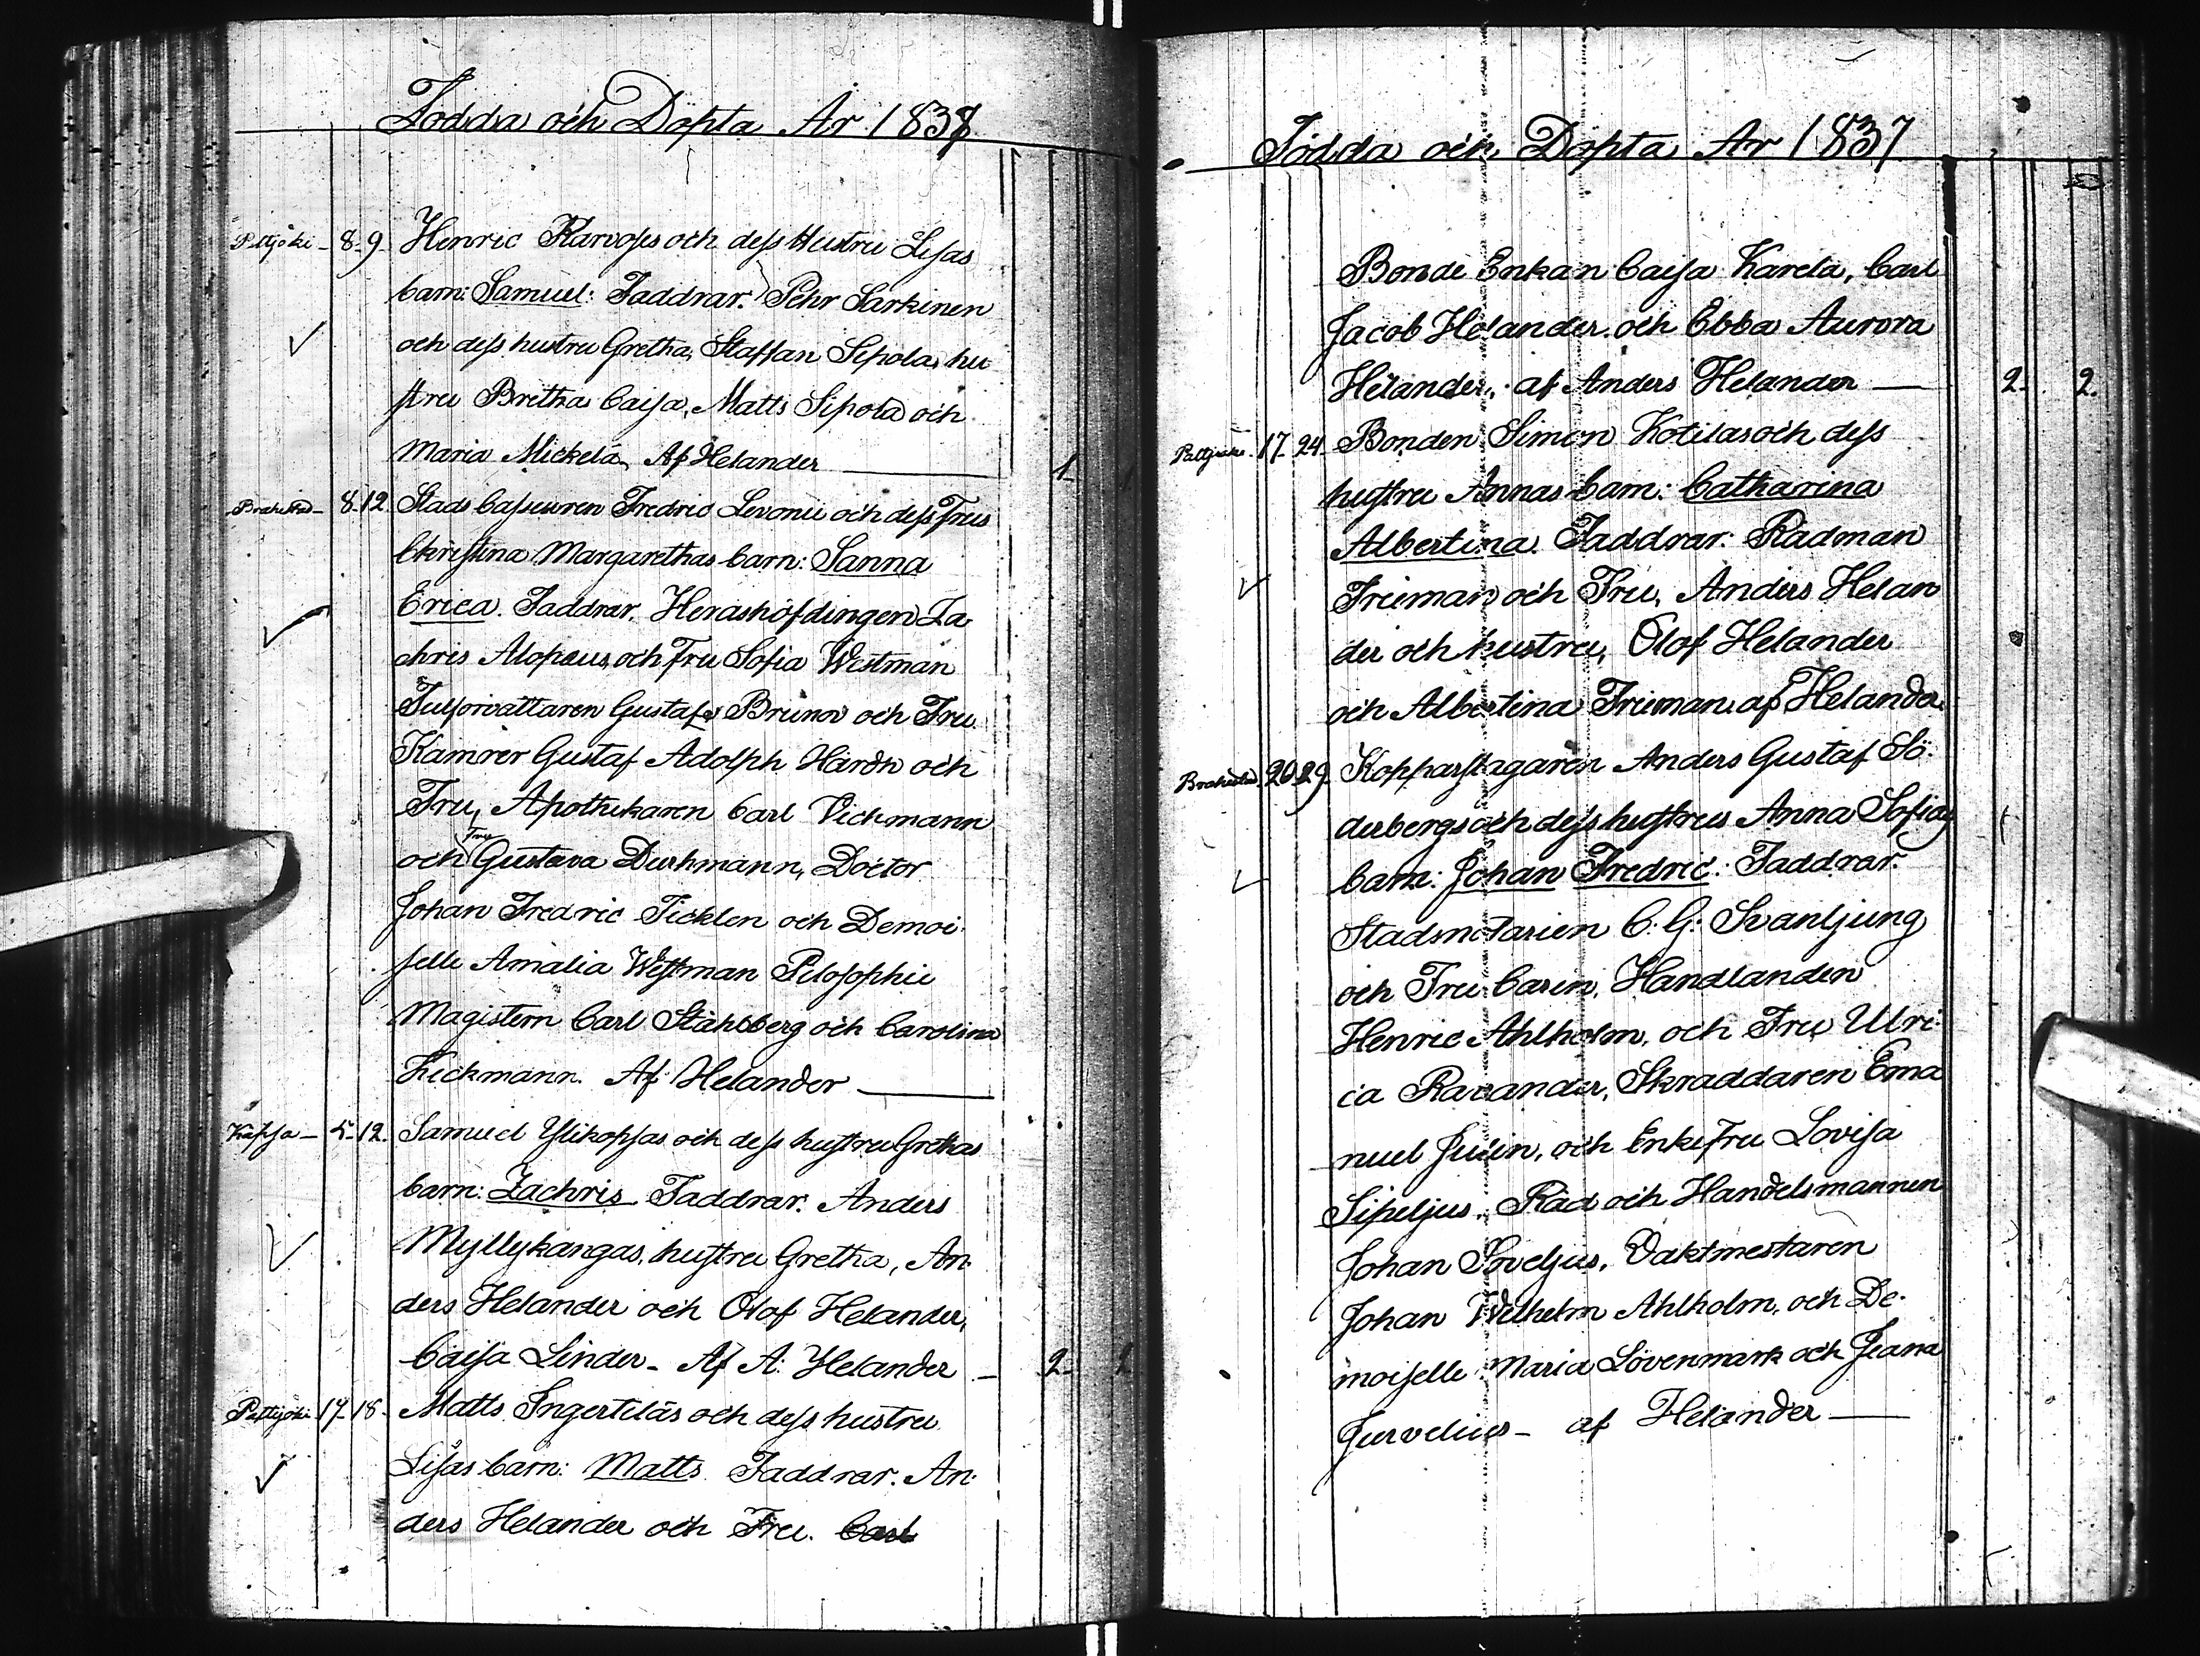 Födda och Döpta År 1837
Pattjoki - 8-9. Henric Karvoses och dess Hustru Lisas
barn: Samuel: Faddrar. Pehr Sarkinen
och dess hustru Gretha, Staffan Sipola, hu
stru Britha Caisa, Matts Sipola och
Maria Mickelä, Af Helander 1-
Brahestad - 8-12. Stads Casseuren Fredric Levonii och dess Frus
Christina Margarethas barn: Sanna
Erica. Faddrar. Heradshöfdingen Za
chris Alopeus, och Fru Sofia Westman
Gustaf Bruno och Fru.
Kamrer Gustaf Adolph Hårdh och
Fru, Apothekaren Carl Vickmann
och Fru Gustava Durhmann, Doctor
Johan Fredric Ticklen och Demoi-
selle Amalia Westman Pilosophie
Magistern Carl Ståhlberg och Carolina
Kickmann. Af Helander
5-12. Samuel Ylikopsas och dess hustru Grethas
barn: Zachris Faddrar. Anders
Myllykangas, hustru Gretha, An-
ders Helander och Olof Helander,
Caisa Linder - Af A: Helander - 2-
Pattijoki 17-18- Matts Ingertiläs och dess hustru
Lisas barn: Matts. Faddrar. An-
ders Helander och Fru. Carl
Födda och Döpta År 1837
Bonde Enkan Caisa Karela, Carl
Jacob Helander och Ebba Aurora
Helander, af Anders Helander 2- 2.
Pattjoki - 17-24. Bonden Simon Kotilas och dess
hustru Annas barn: Catharina
Albertina. Faddrar: Rådman
Frieman och Fru, Anders Helan
der och hustru, Olof Helander
och Albertina Frieman. af Helander.
Brahestad. 20-29. Kopparslagaren Anders Gustaf Sö-
derbergs och dess hustrus Anna Sofias
barn: Johan Fredric: Faddrar.
Stadsnotarien C: G: Svanljung
och Fru Carin, Handlanden
Henric Ahlholm, och Fru Ulri-
ca Ravander, Skraddaren Ema
nuel Julin, och Enkefru Lovisa
Sipeljus. Råd och Handelsmannen
Johan Soveljus. Vaktmestaren
Johan Wilhelm Ahlholm, och De-
moiselle Maria Lövenmark och Jeana
Jurvelius - af Helander